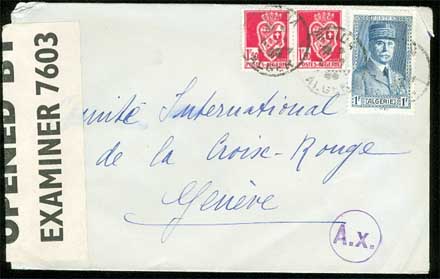 OPENED BY
EXAMINER 7603
POSTES-ALGERIE
POSTES-ALGERIE
ALGERIE
1F
1F
mité International
de la Croix-Rouge
Genève
A.x.